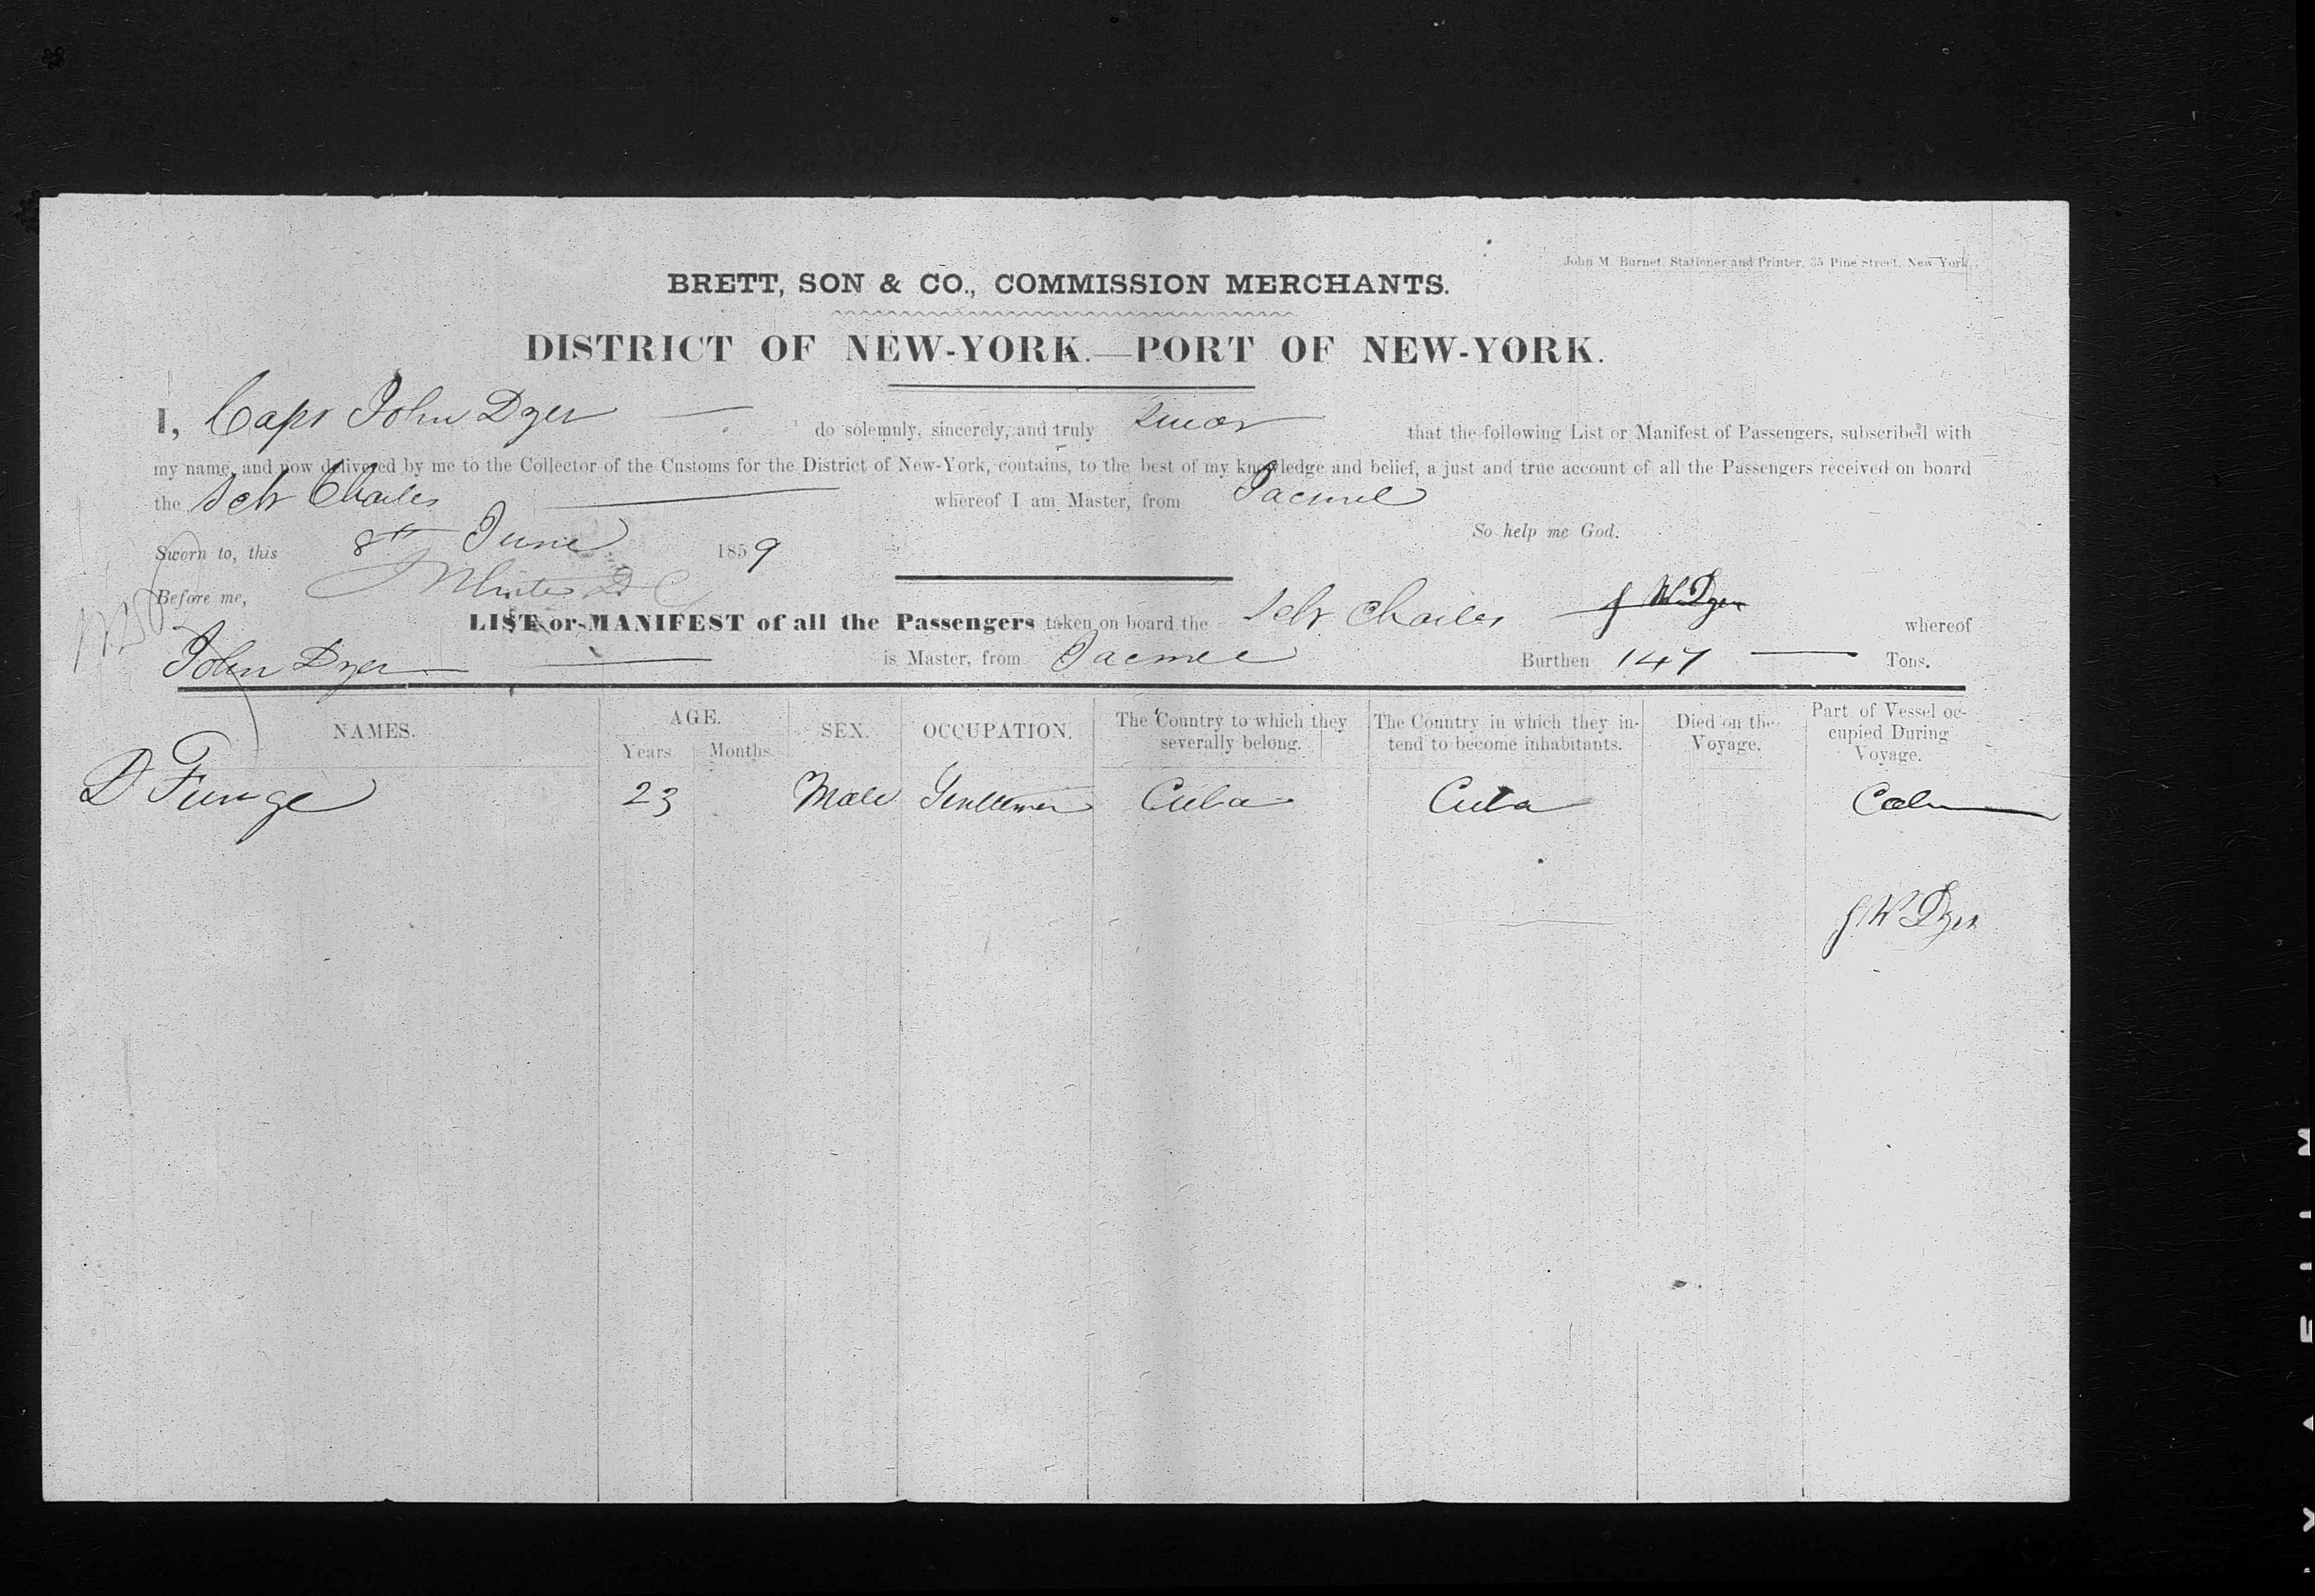 John M. Burnet, Stationer and Printer, 35 Pine Street, New York
BRETT, SON & CO., COMMISSION MERCHANTS.
DISTRICT OF NEW-YORK.—PORT OF NEW-YORK.
I, Capt John Dyer do solemnly, sincerely, and truly swear that the following List or Manifest of Passengers, subscribed with
my name, and now delivered by me to the Collector of the Customs for the District of New-York, contains, to the best of my knowledge and belief, a just and true account of all the Passengers received on board
the Schr Charles whereof I am Master, from Jacmel
So help me God.
Sworn to, this 8th June 1859
Before me,
LIST or MANIFEST of all the Passengers taken on board the Schr Charles J W Dyer whereof
John Dyer is Master, from Jacmel Burthen 147 Tons.
NAMES. AGE. Years. Months. SEX. OCCUPATION. The Country to which they severally belong. The Country in which they intend to become inhabitants. Died on the Voyage. Part of Vessel occupied During Voyage.
D Funge 23 Male Gentleman Cuba Cuba Cabin
J W Dyer